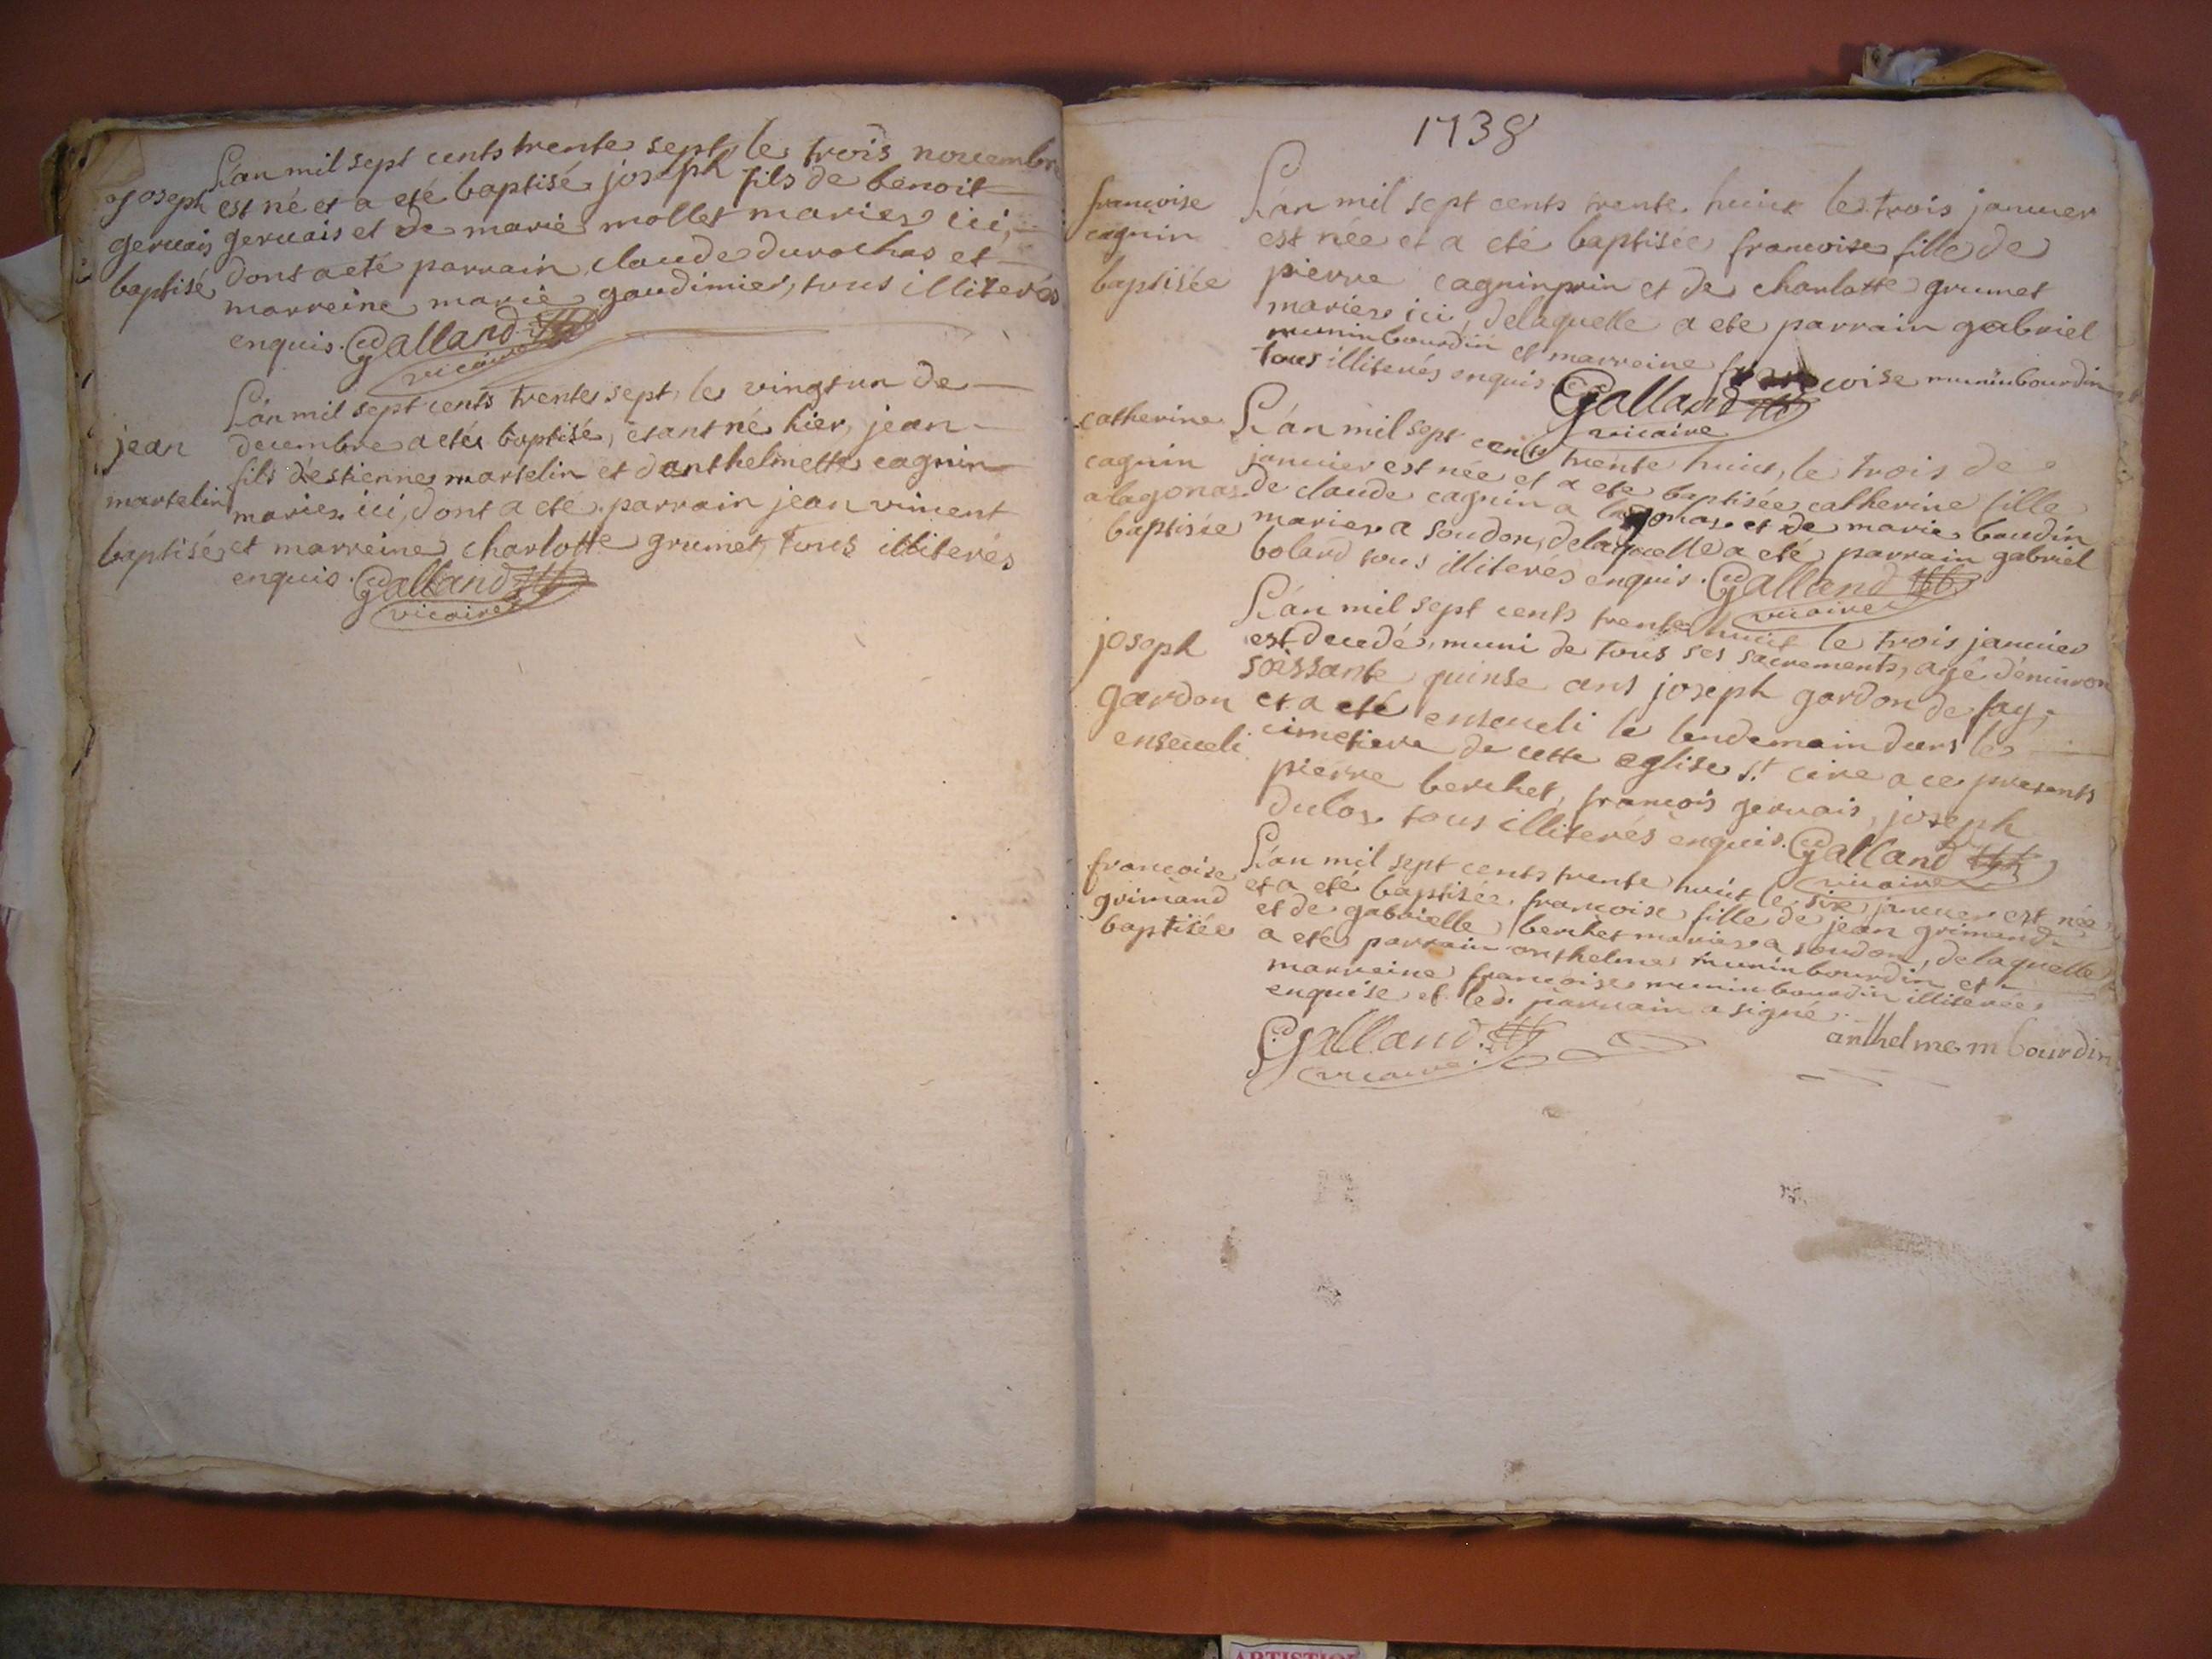 L'an mil sept cents trente sept, le trois novembre
joseph est né et a eté baptisé joseph fils de benoit
gervais gervais et de marie mollet mariés ici,
baptisé dont a eté parrain claude durochas et
marreine marie gaudimier, tous illiterés
enquis. Galland
vicaire
L'an mil sept cents trente sept, le vingt un de
jean decembre a eté baptisé, etant né hier, jean
fils d'estienne martelin et d'anthelmette cagnin
martelin mariés ici, dont a eté parrain jean viment
baptisé et marreine charlotte grumet, tous illiterés
enquis. Galland
vicaire
1738
françoise L'an mil sept cents trente huit le trois janvier
cagnin est née et a eté baptisée françoise fille de
baptisée pierre cagninprin et de charlotte grumet
mariés ici, delaquelle a eté parrain gabriel
muninbourdin et marreine françoise muninbourdin
tous illiterés enquis. Galland
vicaire
catherine L'an mil sept cents trente huit, le trois de
cagnin janvier est née et a eté baptisée catherine fille
alagonas de claude cagnin a lagonas et de marie baudin
baptisée mariés a soudon, delaquelle a eté parrain gabriel
bolard tous illiterés enquis. Galland
vicaire
L'an mil sept cents trente huit le trois janvier
joseph est decedé, muni de tous ses sacrements, agé d'environ
soissante quinse ans joseph gardon de fay,
gardon et a eté enseveli le lendemain dans le
enseveli cimetiere de cette eglise St cire a ce presents
pierre berchet, françois gervais, joseph
dulos tous illiterés enquis. Galland
vicaire
françoise L'an mil sept cents trente huit le six janvier est née
grimand et a eté baptisée françoise fille de jean grimand
baptisée et de gabrielle berchet mariés a soudon, delaquelle
a eté parrain anthelme muninbourdin et
marreine françoise muninbourdin illiterée
enquise et led. parrain a signé.
Galland anthelme m bourdin
vicaire